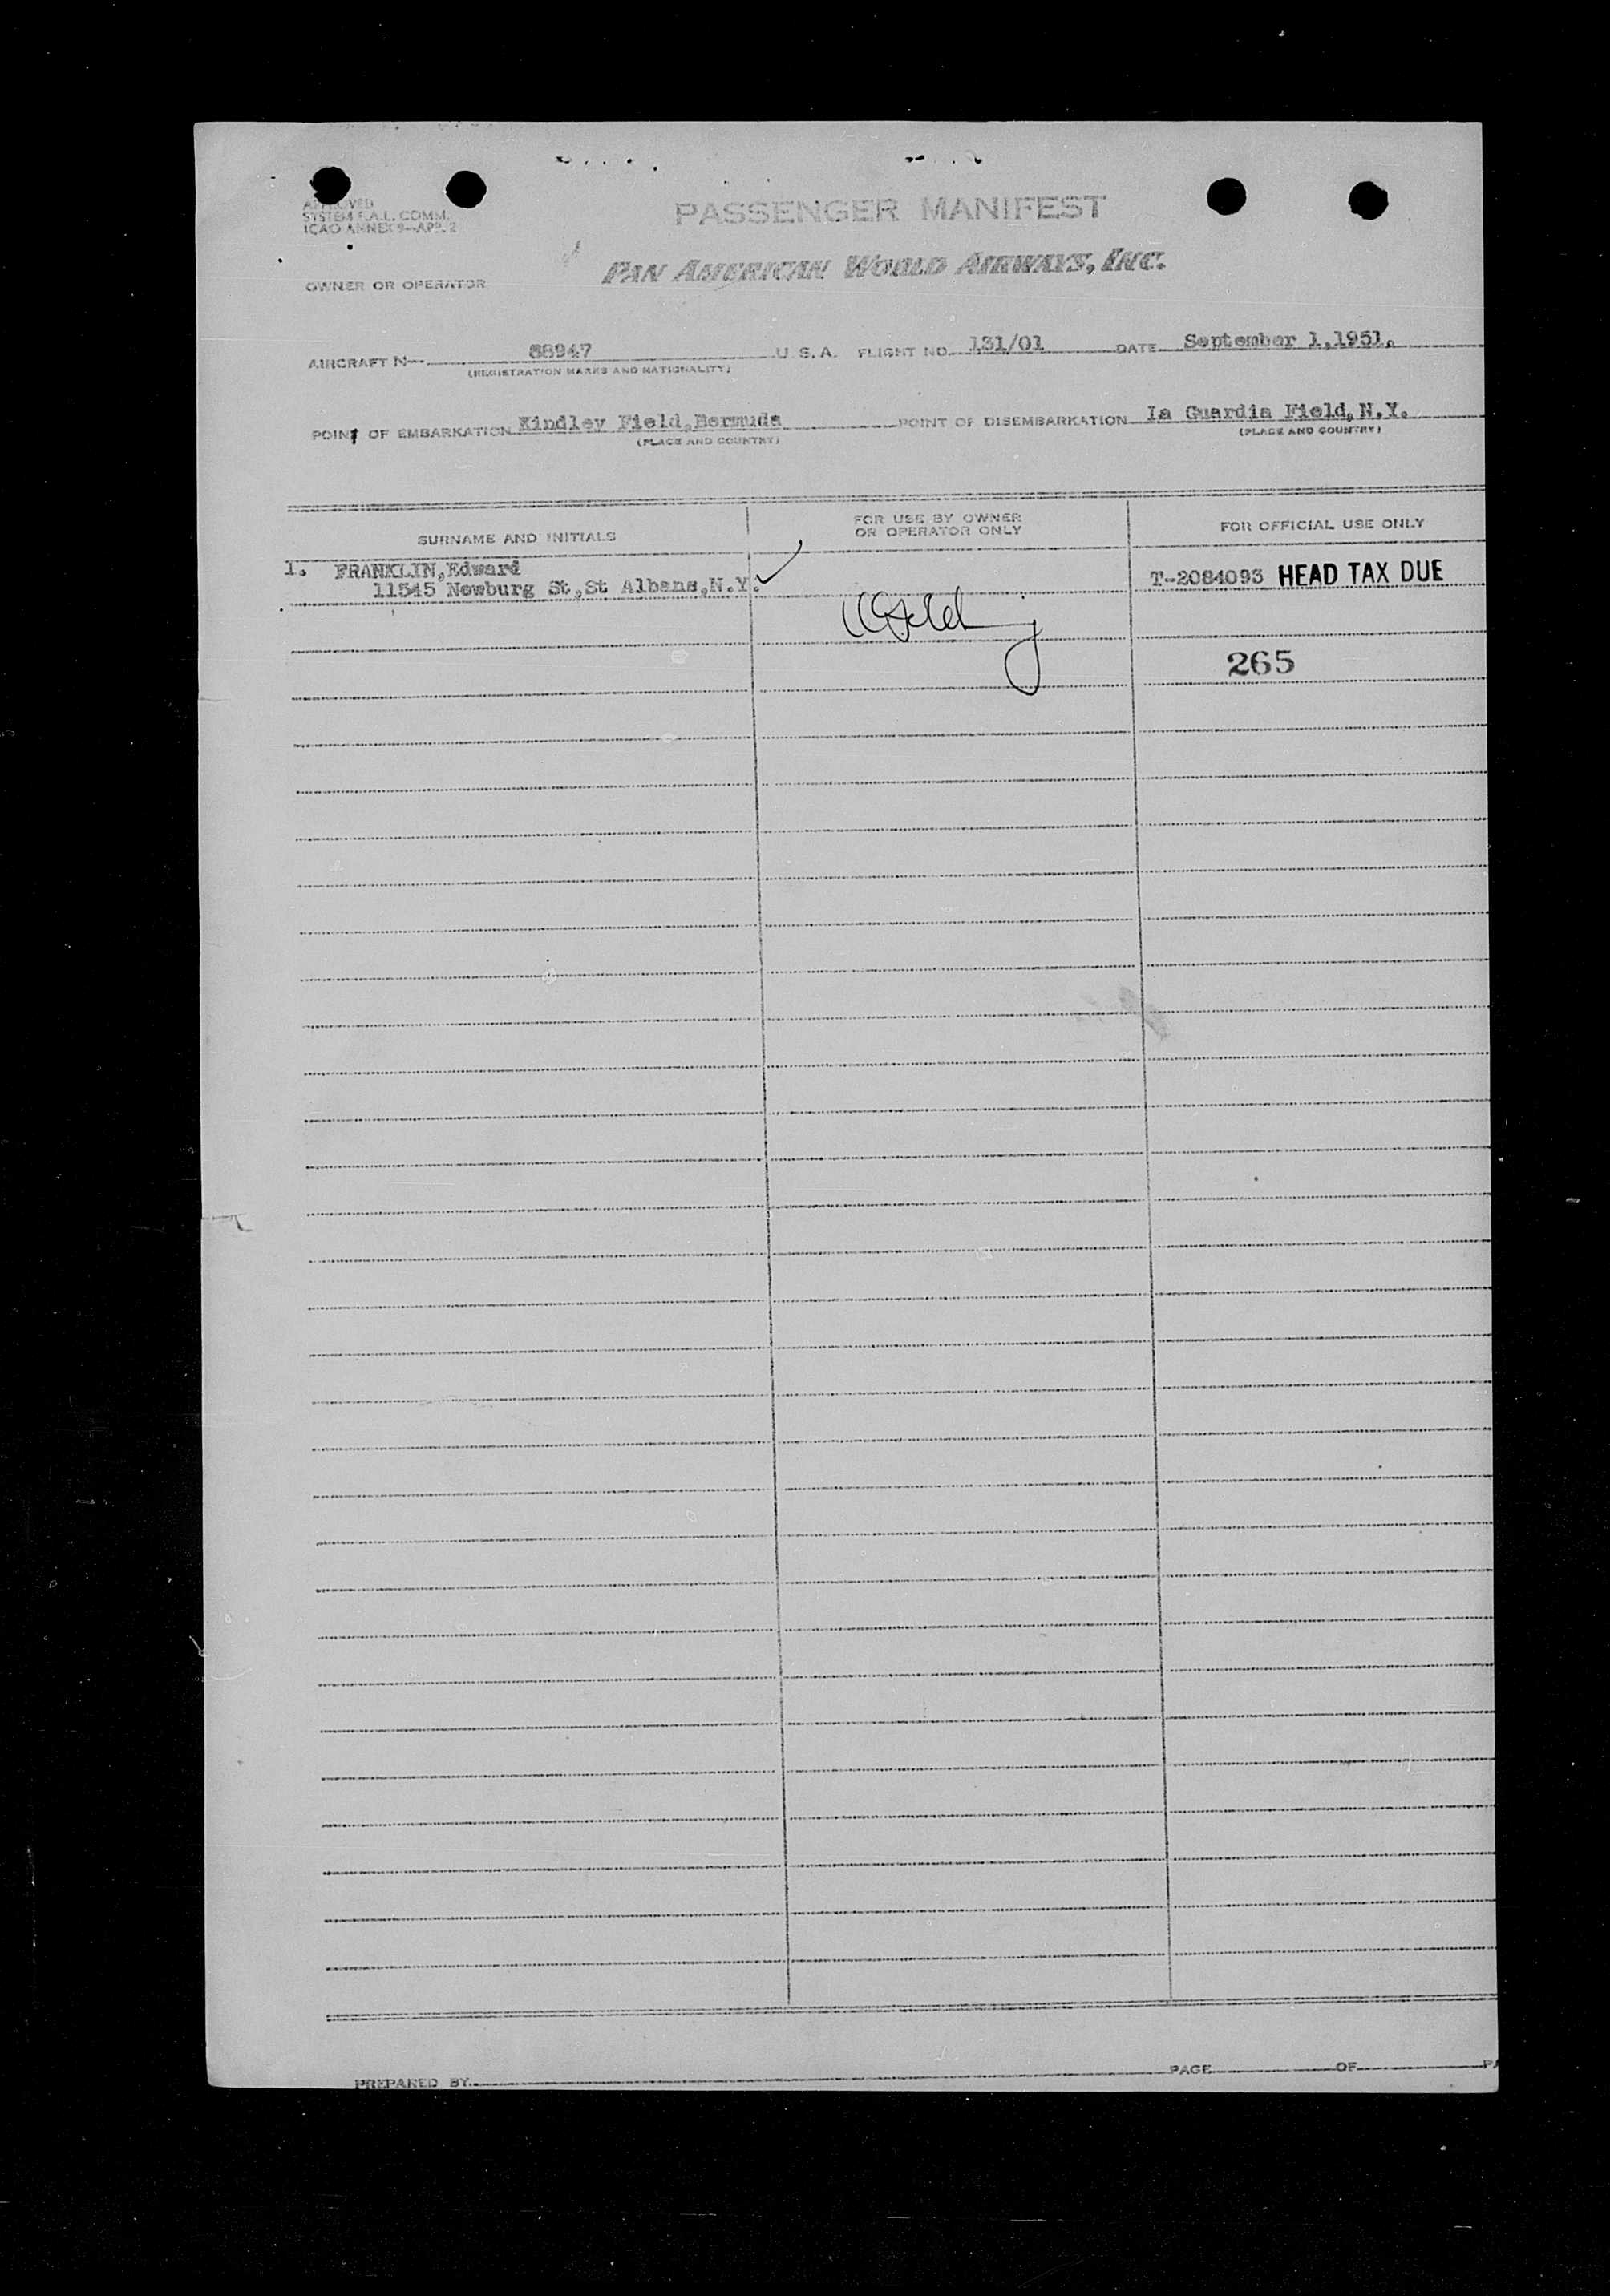 APPROVED
SYSTEM F.A.L. COMM.
ICAO ANNEX 9—APP. 2
PASSENGER MANIFEST
OWNER OR OPERATOR
PAN AMERICAN WORLD AIRWAYS, INC.
AIRCRAFT N— 88947 U. S. A. FLIGHT NO. 131/01 DATE September 1,1951.
(REGISTRATION MARKS AND NATIONALITY)
POINT OF EMBARKATION Kindley Field,Bermuda POINT OF DISEMBARKATION La Guardia Field,N.Y.
(PLACE AND COUNTRY) (PLACE AND COUNTRY)
SURNAME AND INITIALS
FOR USE BY OWNER
OR OPERATOR ONLY
FOR OFFICIAL USE ONLY
1. FRANKLIN,Edward
11545 Newburg St,St Albans,N.Y.
T-2084093 HEAD TAX DUE
265
PREPARED BY PAGE OF